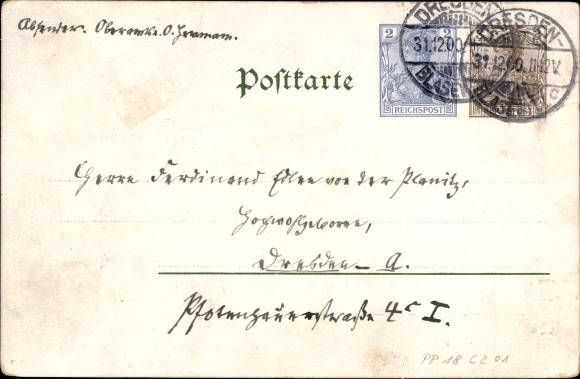 Absender. Oberamtsr. O. Hermann.
Postkarte
2 2
REICHSPOST
REICHSPOST
DRESDEN-
31.12.00.
BLASEW
DRESDEN-
31.12.00.11-12V.
BLASEWITZ
c
Herrn Ferdinand Edlen von der Planitz,
Hochwohlgeboren,
Dresden - A.
Pfotenhauerstraße 4c I.
PP 18 C 2 01